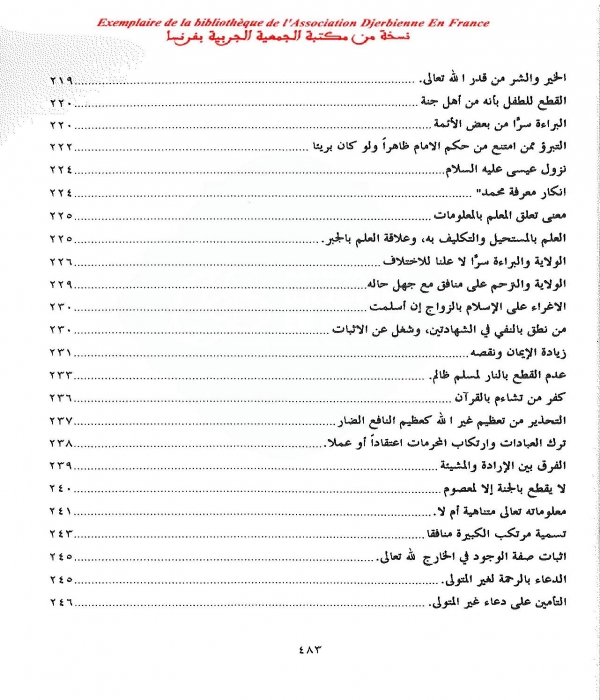 Exemplaire de la bibliothèque de l'Association Djerbienne En France
نسخة من مكتبة الجمعية الجربية بفرنسا
الخير والشر من قدر الله تعالى. ٢١٩
القطع للطفل بأنه من أهل جنة ٢٢٠
البراءة سرًا من بعض الأئمة ٢٢٠
التبرؤ ممن امتنع من حكم الامام ظاهراً ولو كان بريئا ٢٢٢
نزول عيسى عليه السلام ٢٢٤
انكار معرفة محمد" ٢٢٤
معنى تعلق المعلم بالمعلومات ٢٢٥
العلم بالمستحيل والتكليف به، وعلاقة العلم بالجبر. ٢٢٥
الولاية والبراءة سرًا لا علنا للاختلاف ٢٢٦
الولاية والترحم على منافق مع جهل حاله ٢٢٩
الاغراء على الإسلام بالزواج إن أسلمت ٢٣٠
من نطق بالنفي في الشهادتين، وشغل عن الاثبات ٢٣٠
زيادة الإيمان ونقصه ٢٣١
عدم القطع بالنار لمسلم ظالم. ٢٣٣
كفر من تشاءم بالقرآن ٢٣٦
التحذير من تعظيم غير الله كعظيم النافع الضار ٢٣٧
ترك العبادات وارتكاب المحرمات اعتقاداً أو عملا. ٢٣٨
الفرق بين الإرادة والمشيئة ٢٣٩
لا يقطع بالجنة إلا لمعصوم ٢٤٠
معلوماته تعالى متناهية أم لا. ٢٤١
تسمية مرتكب الكبيرة منافقا ٢٤٣
اثبات صفة الوجود في الخارج لله تعالى. ٢٤٥
الدعاء بالرحمة لغير المتولى. ٢٤٥
التأمين على دعاء غير المتولى. ٢٤٦
٤٨٣